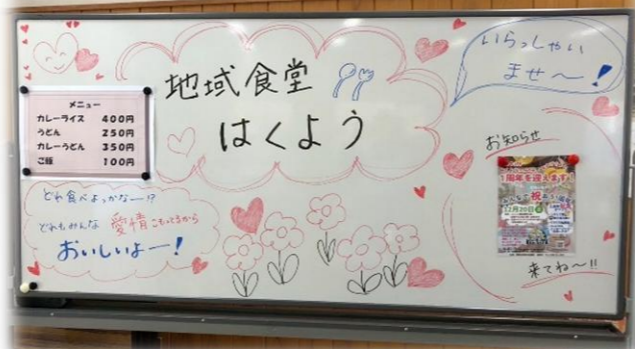 地域食堂
はくよう
いらっしゃい
ませ～!
メニュー
カレーライス 400円
うどん 250円
カレーうどん 350円
ご飯 100円
どれ食べよっかなー!?
どれもみんな 愛情 こもってるから
おいしいよー!
お知らせ
1周年を迎えます!
12月20日
来てね～!!